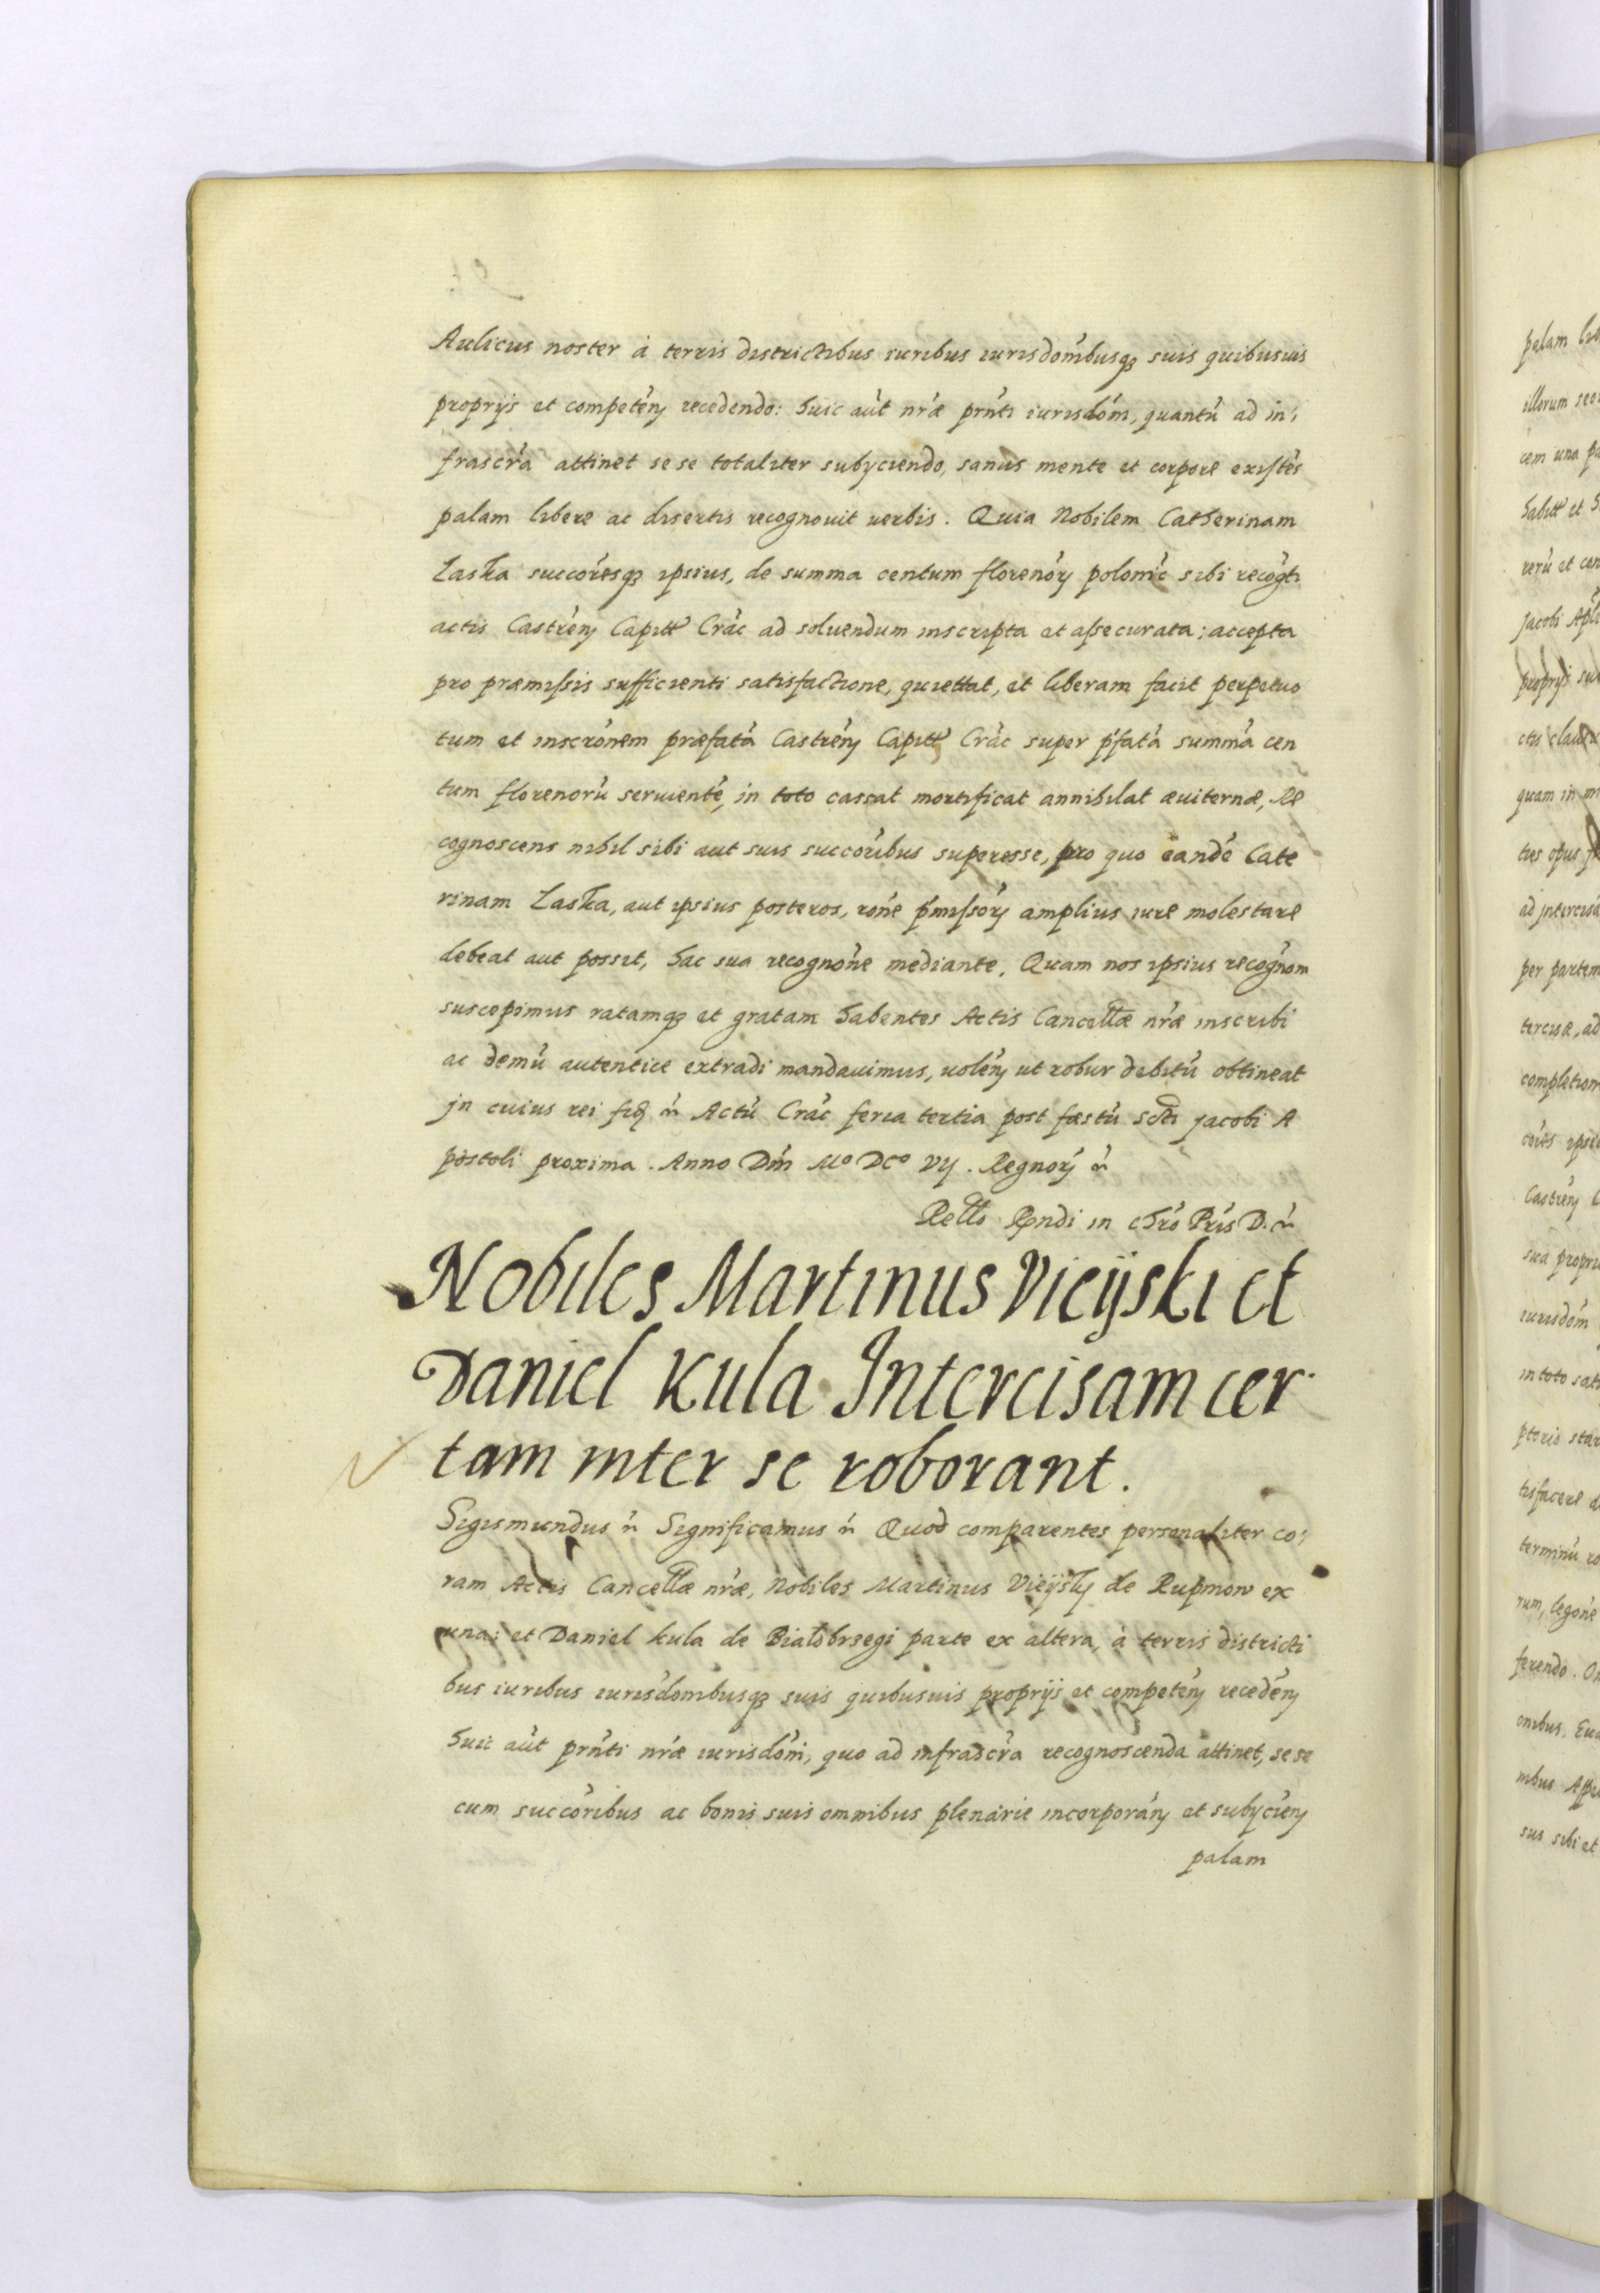 Aulicus noster à terris districtibus iuribus iurisdoníbusq₃ suis quibusuis
proprijs et competén recedendo: Huic aūt nŕæ prńti iurisdóni, quantū ad in,
frascŕa attinet se se totaliter subyciendo, sanus mente et corpore existēs
palam libere ac disertis recognouit verbis. Quia Nobilem Catherinam
Laska succoŕesq₃ ipsius, de summa centum florenór polonić sibi recogti
actis Castrén Capitt Crác ad soluendum inscripta et assecurata; accepta
pro præmissis sufficienti satisfactione, quiettat, et liberam facit perpetuo
tum et inscrónem præfatā Castrén Capitt Crác super ṕfatā summā cen
tum florenorū seruientē, in toto cassat mortificat annihilat æuiternæ, Re
cognoscens nihil sibi aut suis succoŕibus superesse, pro quo eandē Cate
rinam Laska, aut ipsius posteros, róne ṕmissór amplius iure molestare
debeat aut possit, hac sua recognóne mediante. Quam nos ipsius recognom
suscepimus ratamq₃ et gratam habentes Actis Cancellæ nŕæ inscribi
ac demū autentice extradi mandauimus, uolén ut robur debitū obtineat
jn cuius rei fid ń Actū Crác feria tertia post fæstū Scti Jacobi A
postoli proxima. Anno Dni Mᵒ DCᵒ VIJ. Regnor ń
Rello Rndi in Chró Pris D. ń
Nobiles Martinus Vieijski et
Daniel Kula Intercisam cer
tam inter se roborant.
Sigismundus ń Significamus ń Quod comparentes personaliter co,
ram Actis Cancellæ nŕæ, Nobiles Martinus Vieijsky de Rupmow ex
una; et Daniel Kula de Bialobrsegi parte ex altera, à terris districti
bus iuribus iurisdonibusq₃ suis quibusuis proprijs et competén recedén
Huic aūt prńti nŕæ iurisdóni, quo ad infrascŕa recognoscenda attinet, se se
cum succoribus ac bonis suis omnibus plenarie incorporán et subycién
palam